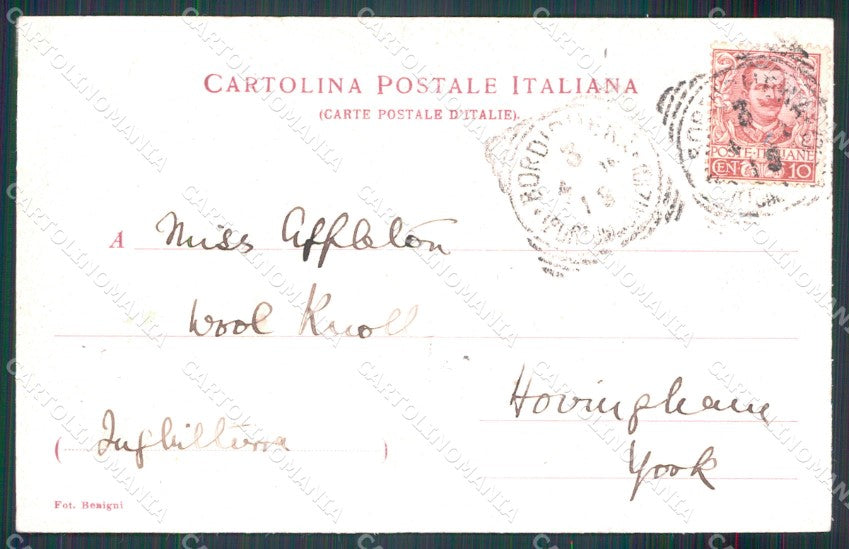 CARTOLINA POSTALE ITALIANA
(CARTE POSTALE D'ITALIE).
POSTE ITALIANE
CENT. 10
BORDIGHERA
A Miss Appleton
Wool Knoll
Hovingham
York
( Inghilterra )
Fot. Benigni
CARTOLINOMANIA